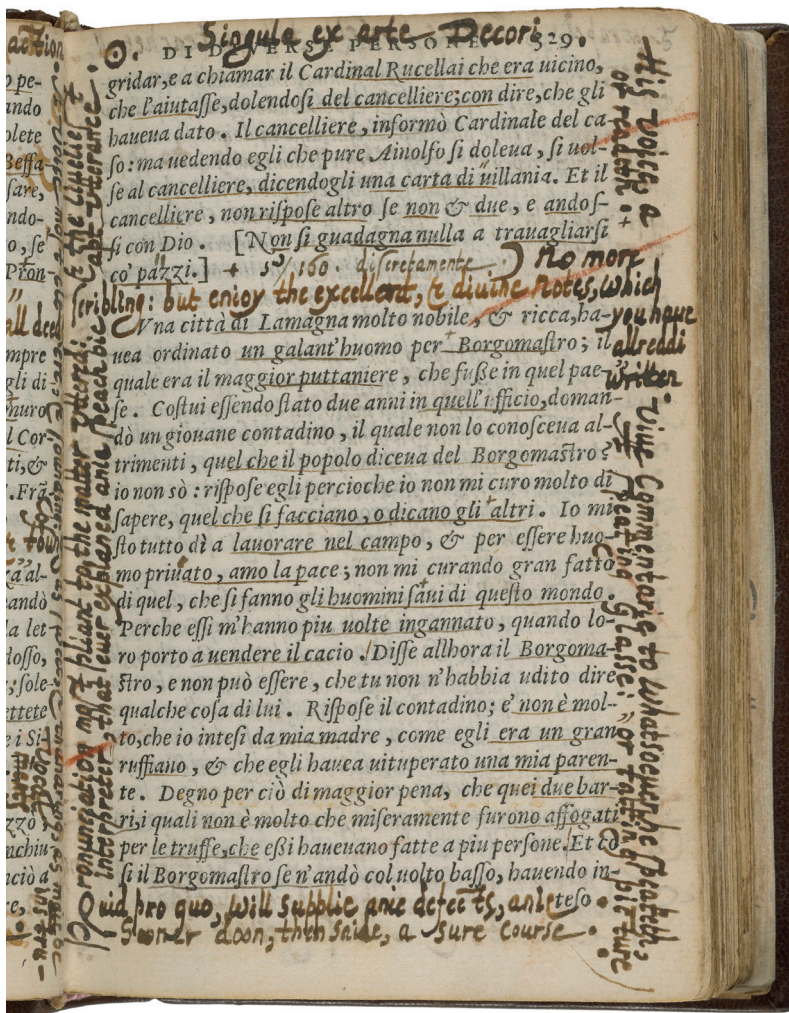 Singula ex arte Decori
DI DIVERSE PERSONE. 329.
gridar, e a chiamar il Cardinal Rucellai che era uicino,
che l'aiutaſſe, dolendoſi del cancelliere; con dire, che gli
haueua dato. Il cancelliere, informò Cardinale del ca-
ſo: ma uedendo egli che pure Ainolfo ſi doleua, ſi uol-
ſe al cancelliere, dicendogli una carta di uillania. Et il
cancelliere, non riſpoſe altro ſe non & due, e andoſ-
ſi con Dio. [Non ſi guadagna nulla a trauagliarſi
co' pazzi.] + 160. diſcretamente. No more
ſcribling: but enjoy the excellent, & divine Notes, which
you have
allreddi
written.
Vna città di Lamagna molto nobile, & ricca, ha-
uea ordinato un galant'huomo per Borgomaſtro; il
quale era il maggior puttaniere, che fuſſe in quel pae-
ſe. Coſtui eſſendo ſtato due anni in quell'ufficio, doman-
dò un giouane contadino, il quale non lo conoſceua al-
trimenti, quel che il popolo diceua del Borgomaſtro?
io non sò: riſpoſe egli percioche io non mi curo molto di
ſapere, quel che ſi facciano, o dicano gli altri. Io mi
ſto tutto dì a lauorare nel campo, & per eſſere huo-
mo priuato, amo la pace; non mi curando gran fatto
di quel, che ſi fanno gli huomini ſaui di queſto mondo.
Perche eſſi m'hanno piu uolte ingannato, quando lo-
ro porto a uendere il cacio. Diſſe allhora il Borgoma-
ſtro, e non può eſſere, che tu non n'habbia udito dire
qualche coſa di lui. Riſpoſe il contadino; e' non è mol-
to, che io inteſi da mia madre, come egli era un gran
ruffiano, & che egli hauea uituperato una mia paren-
te. Degno per ciò di maggior pena, che quei due bar-
ri, i quali non è molto che miſeramente furono affogati
per le truffe, che eßi haueuano fatte a piu perſone. Et co
ſi il Borgomaſtro ſe n'andò col uolto baſſo, hauendo in-
teſo.
Quid pro quo, will supplie anie defects, anie
Sooner doon, then saide, a sure course.
His voice a
Vive Commentarie to whatsoever he speaketh,
of readeth:
speaking Glasse: or talking picture
Pronunciation most pliant to the matter utterd: & the livelie
interpreter, that ever explaned anie speach bie apt utterance.